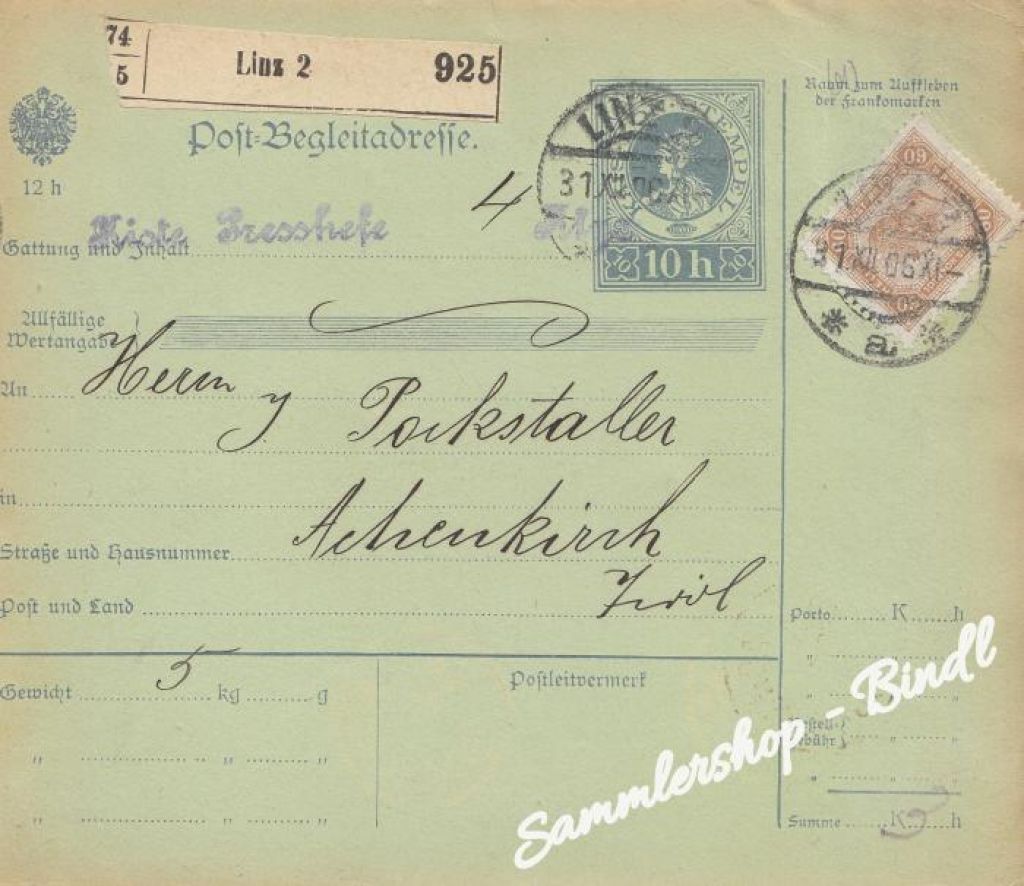 74
5
Linz 2 925
Post-Begleitadresse.
12 h
LINZ
STEMPEL
31 XII 06
10 h
Raum zum Aufkleben
der Frankomarken
60
31 XII 06 IX
* a *
4
Kiste Presshefe
Gattung und Inhalt
Allfällige
Wertangabe
An Herrn J. Pockstaller
in
Achenkirch
Straße und Hausnummer
Tirol
Post und Land
Gewicht 5 kg g
" " "
" " "
Postleitvermerk
Porto K h
" " "
" " "
Bestell-
gebühr " "
" " "
Summe K h
Sammlershop - Bindl